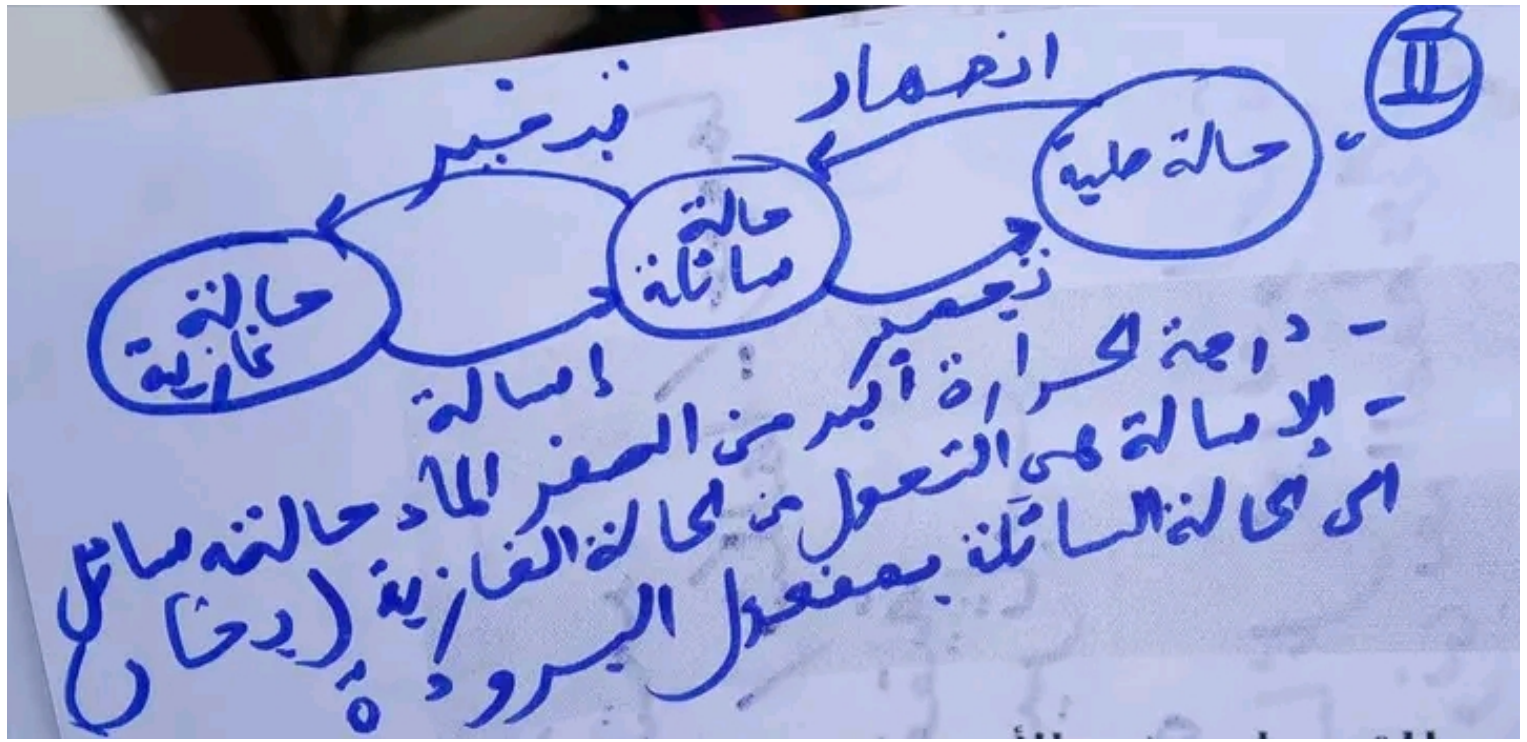 II
انصهار
تبخير
حالة صلبة
حالة سائلة
حالة غازية
تجميد
إسالة
- درجة الحرارة أكبر من الصفر الماء حالته سائل
- الإسالة هي التحول من الحالة الغازية (بخار)
الى الحالة السائلة بمفعول البرودة